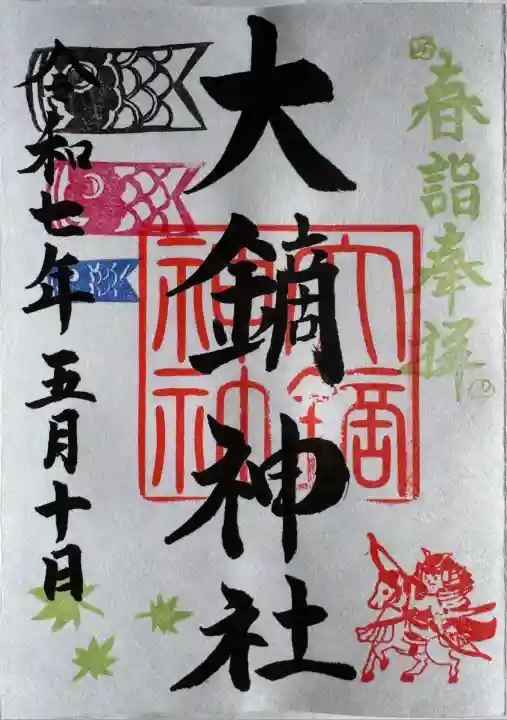 春詣奉拝
大鏑神社
大鏑
神社
令和七年五月十日